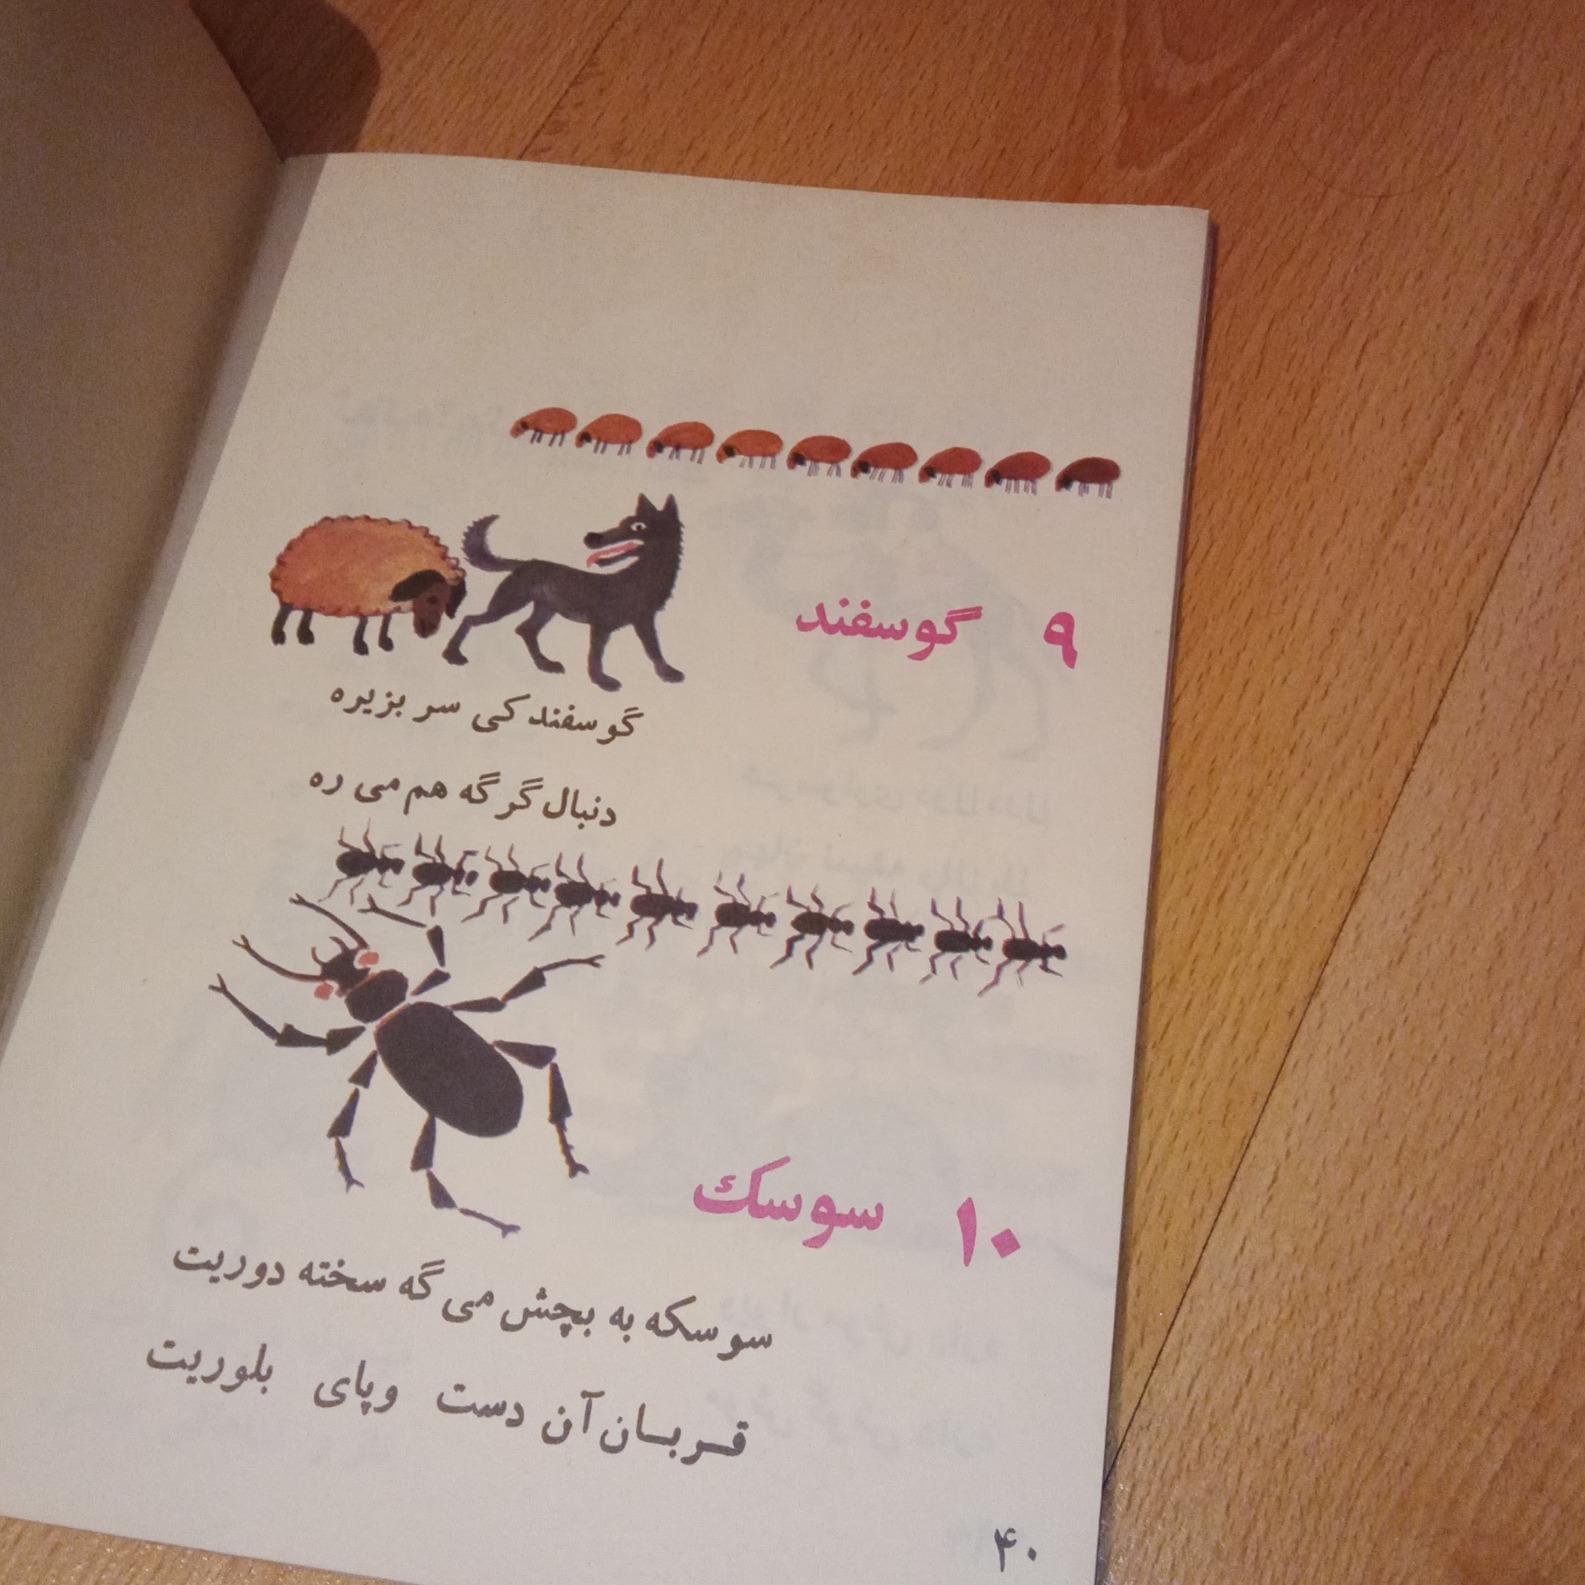 ۹ گوسفند
گوسفند کی سر بزیره
دنبال گرگه هم می ره
۱۰ سوسک
سوسکه به بچش می گه سخته دوریت
قربان آن دست وپای بلوریت
۴۰